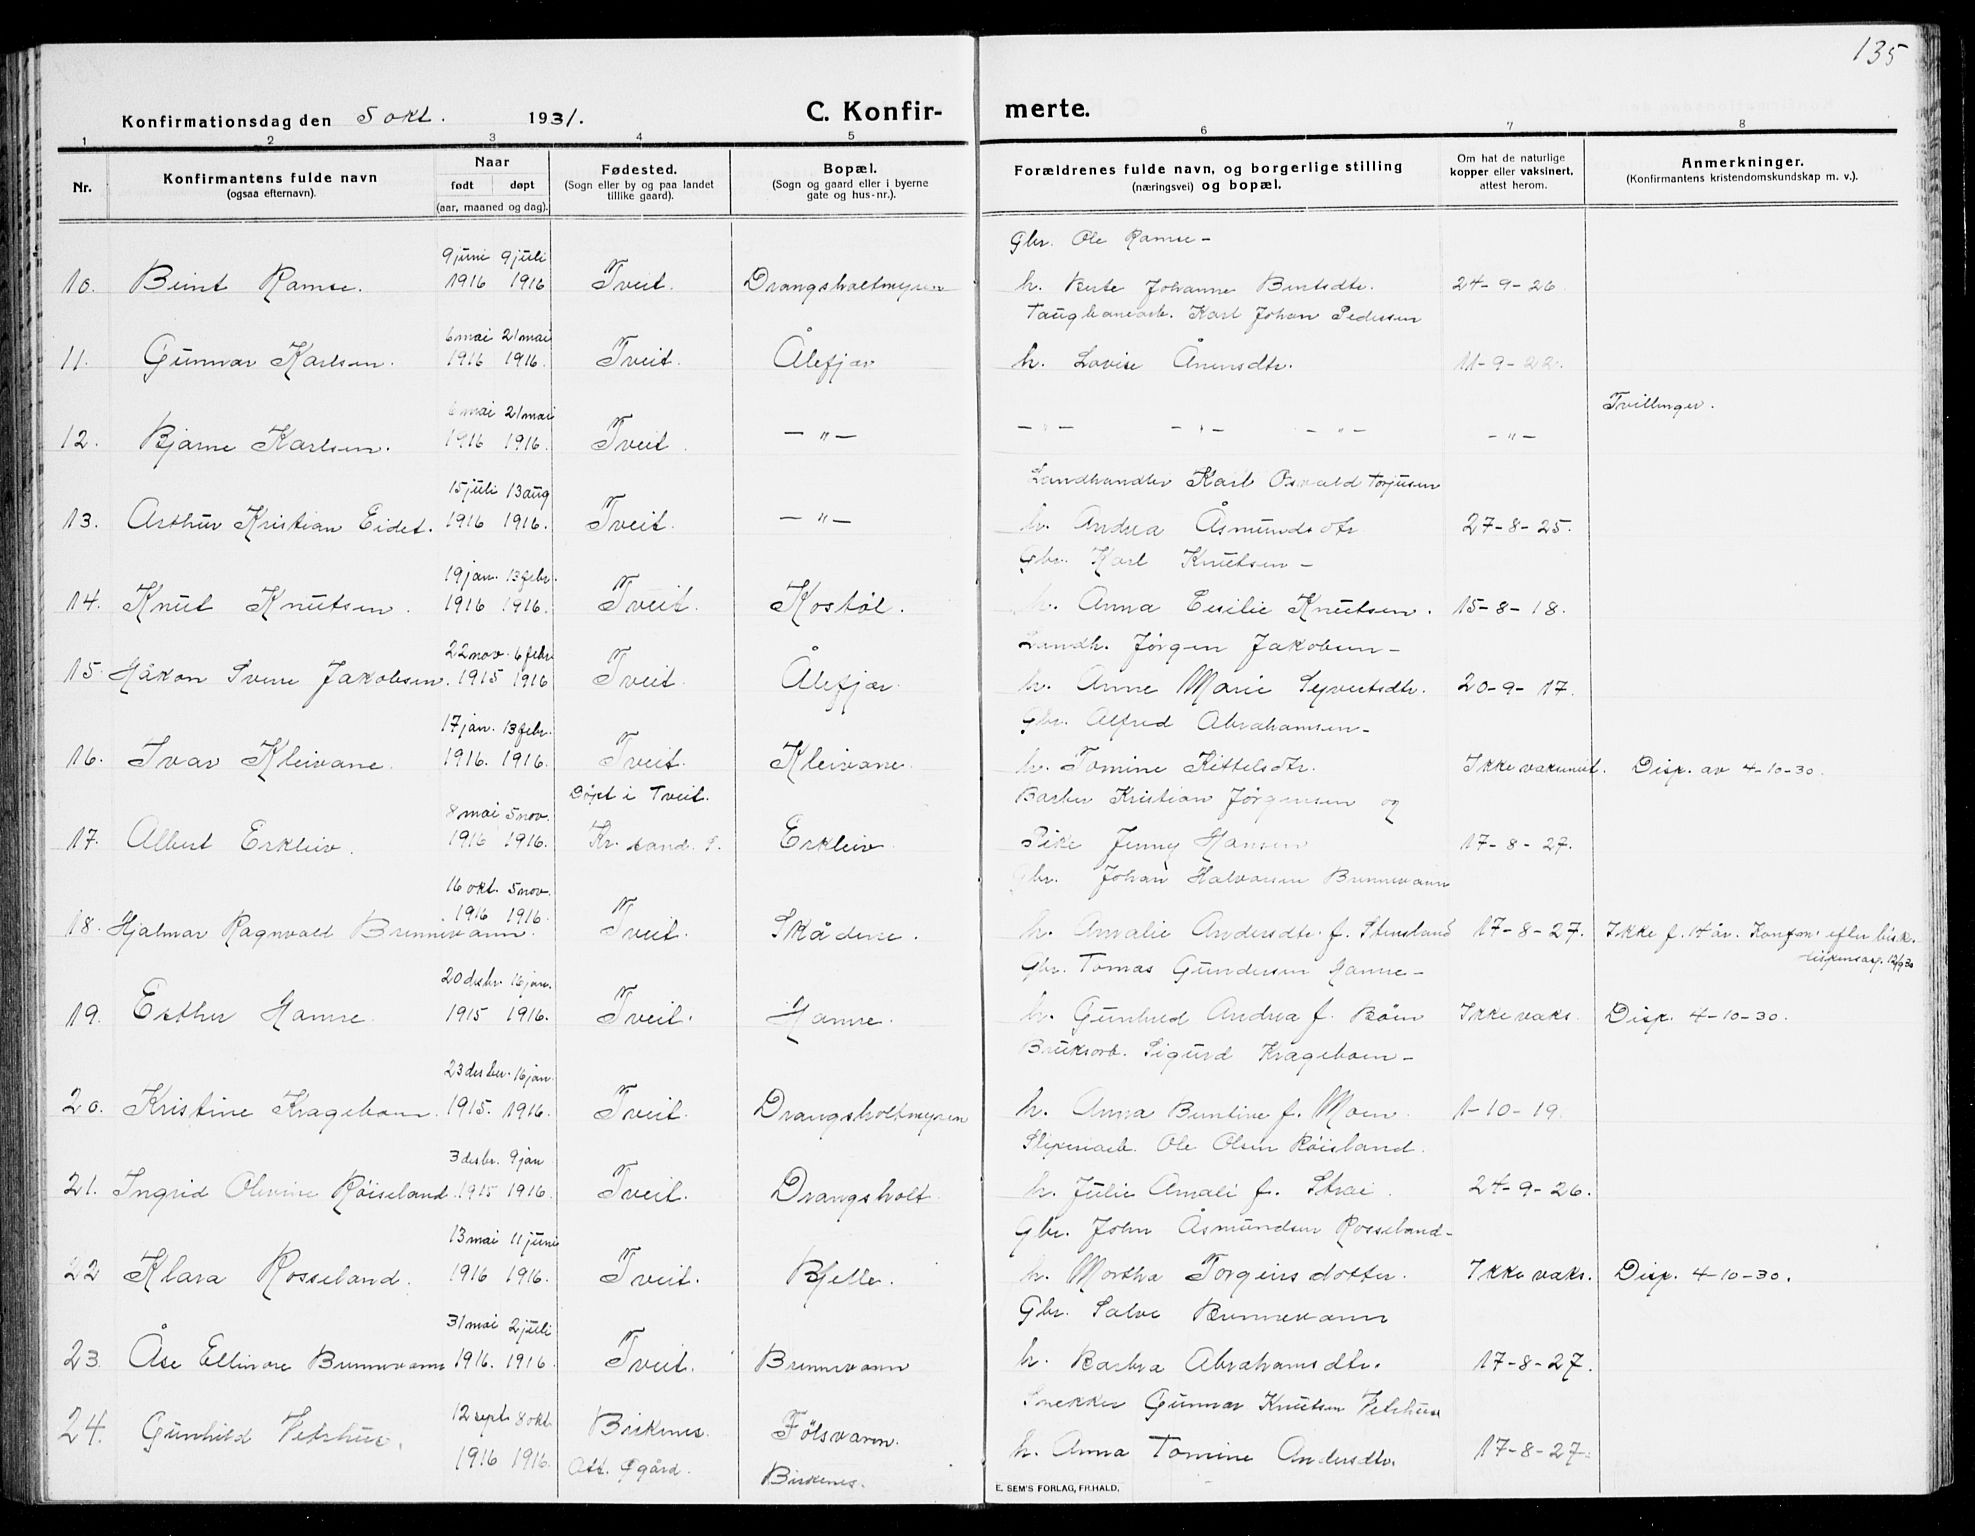 135
Konfirmationsdag den 5 okt. 1931.
C. Konfir- merte.
1 2 3 4 5 6 7 8
Nr. Konfirmantens fulde navn (ogsaa efternavn). Naar født døpt (aar, maaned og dag). Fødested. (Sogn eller by og paa landet tillike gaard). Bopæl. (Sogn og gaard eller i byerne gate og hus-nr.). Forældrenes fulde navn, og borgerlige stilling (næringsvei) og bopæl. Om hat de naturlige kopper eller vaksinert, attest herom. Anmerkninger. (Konfirmantens kristendomskundskap m. v.).
9 juni 9 juli Gbr. Ole Ramse -
10. Bernt Ramse. 1916 1916 Tveit. Drangsholtmyren h. Berte Johanne Berntsdtr. 24-9-26.
6 mai 21 mai Taugbanearb. Karl Johan Pedersen
11. Gunnar Karlsen. 1916 1916. Tveit. Ålefjær h. Lovise Ånensdtr. 11-9-22.
6 mai 21 mai Tvillinger.
12. Bjarne Karlsen. 1916 1916. Tveit - " - - " - - " - - " - - " -
15 juli 13 aug Landhandler Karl Osvald Torjusen
13. Arthur Kristian Eidet. 1916 1916. Tveit. - " - h. Andrea Åsmundsdtr 27-8-25.
19 jan. 13 febr. Gbr. Karl Knutsen -
14. Knut Knutsen. 1916 1916. Tveit. Kostøl. h. Anna Cesilie Knutsen. 15-8-18.
22 nov. 6 febr Landh. Jørgen Jakobsen -
15. Håkon Sverre Jakobsen. 1915 1916 Tveit. Ålefjær. h. Anne Marie Syvertsdtr. 20-9-17.
17 jan. 13 febr. Gbr. Alfred Abrahamsen -
16. Ivar Kleivane. 1916. 1916. Tveit. Kleivane. h. Tomine Kittelsdtr. Ikke vaksinert. Disp. av 4-10-30.
8 mai 5 nov. Døpt i Tveit. Barber Kristian Jørgensen og
17. Albert Erkleiv. 1916 1916. Kr. sand. S. Erkleiv. Pike Jenny Hansen 17-8-27.
16 okt. 5 nov. Gbr. Johan Halvorsen Brennevann
18. Hjalmar Ragnvald Brennevann. 1916 1916. Tveit. Skådene. h. Amalie Andersdtr. f. Stensland 17-8-27. Ikke f. 14 år. Konfm. efter bisk.
dispensasj. 12/9 30
20 desbr. 16 jan. Gbr. Tomas Gundersen Hamre -
19. Esther Hamre. 1915 1916. Tveit. Hamre. h. Gunhild Andrea f. Bøen Ikke vaks. Disp. 4-10-30.
23 desbr. 16 jan. Bruksarb. Sigurd Krageboen -
20. Kristine Krageboen. 1915. 1916. Tveit Drangsholtmyren h. Anna Bentine f. Moen. 1-10-19.
3 desbr. 9 jan Sliperiarb. Ole Olsen Røisland.
21. Ingrid Olevine Røiseland. 1915 1916. Tveit. Drangsholt. h. Julie Amali f. Strai. 24-9-26.
13 mai 11 juni Gbr. John Åsmundsen Rosseland -
22 Klara Rosseland. 1916 1916. Tveit. Bjelle. h. Martha Torgersdotter. Ikke vaks. Disp. 4-10-30.
31 mai 2 juli Gbr. Salve Brennevann
23. Åse Ellinore Brennevann 1916. 1916 Tveit. Brennevann h. Barbra Abrahamsdtr. 17-8-27.
12 sept. 8 okt. Birkenes. Snekker Gunnar Knutsen Vetrhus
24. Gunhild Vetrhus. 1916 1916. Att. Øgård. Fölsvaren. Birkenes. h. Anna Tomine Andersdtr. 17-8-27.
E. SEM'S FORLAG, FR.HALD.